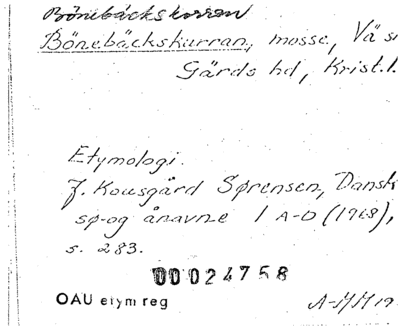 Bönebäckskurran
Bönebäckskurran, mosse, Vä s
Gärds hd, Krist.l.
Etymologi.
J. Kousgård Sørensen, Dansk
sø- og ånavne 1 A-D (1968),
s. 283.
00024758
OAU etym reg
A-MM 19